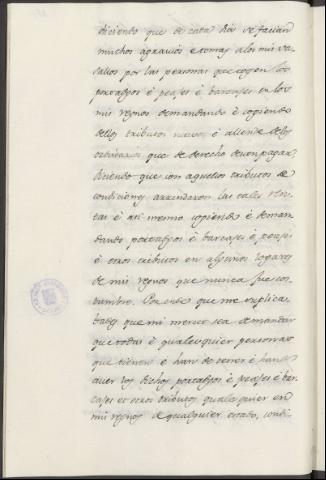 diciendo que de cada dia se facian
muchos agravios e tomas a los mis va
sallos por las personas que cogen los
portadgos è peajes è barcajes en los
mis regnos demandando è cogiendo
dellos tributos nuevos è allende de los
ordinarios que de derecho deven pagar
diciendo que con aquellos tributos è
condiciones arrendaron las tales ren-
tas è asi mesmo cogiendo è deman
dando portadgos è barcajes è peajes
è otros tributos en algunos logares
de mis regnos que nunca fue cos-
tumbre. Por ende que me suplica
bades que mi merced sea de mandar
que todas è qualesquier personas
que tienen è han de tener è han de
aver los dichos portadgos è peajes è bar
cajes et otros tributos qualesquier en
mis regnos de qualquier estado, condi